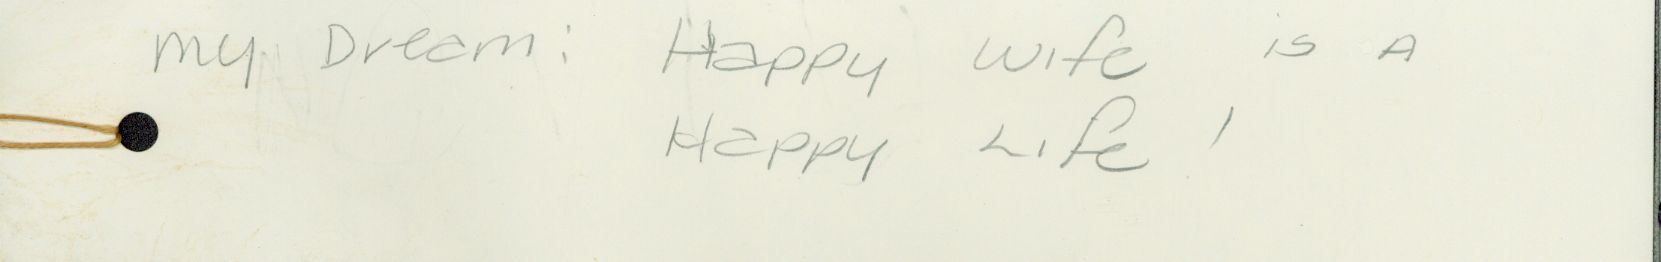 my Dream: Happy wife is A
Happy Life !